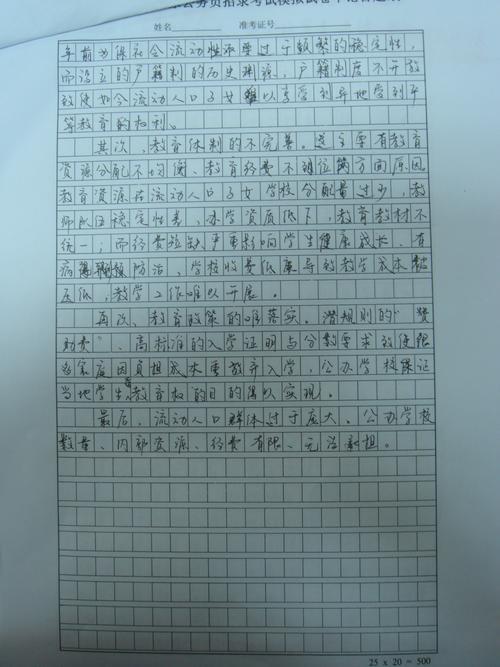 公务员招录考试模拟试卷申论答题
姓名 准考证号
年前为保社会流动性不要过于频繁的稳定性,
而设立的户籍制的历史渊源,户籍制度不开放
致使如今流动人口子女难以享受到异地受到平
等教育的权利。
其次,教育体制的不完善。这主要有教育
资源分配不均衡、教育经费不到位两方面原因。
教育资源在流动人口子女学校分配量过少,教
师队伍稳定性差,办学资质低下,教育教材不
统一;而经费短缺严重影响学生健康成长、有
病得不到防治、学校收费低廉导致教学成本
压低,教学工作难以开展。
再次、教育政策的难落实。潜规则的“赞
助费”、高标准的入学证明与分数要求致使很
多家庭因负担成本重放弃入学,公办学校保证
当地学生教育权的目的得以实现。
最后,流动人口群体过于庞大、公办学校
数量、内部资源、经费有限、无法承担。
25 x 20 = 500